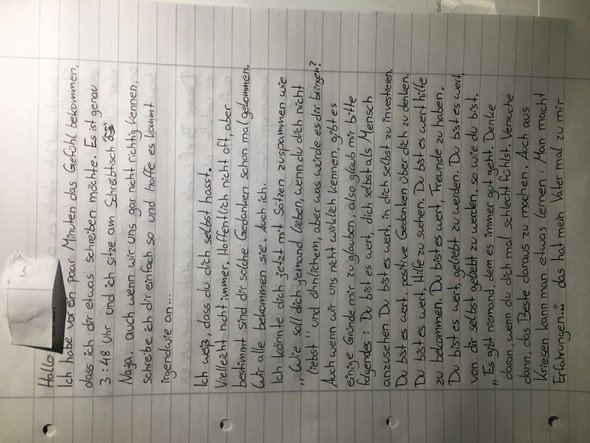 Hallo
Ich habe vor ein paar Minuten das Gefühl bekommen,
dass ich dir etwas schreiben möchte. Es ist genau
3:48 Uhr und ich sitze am Schreibtisch
Naja, auch wenn wir uns gar nicht richtig kennen,
schreibe ich dir einfach so und hoffe es kommt
irgendwie an...
Ich weiß, dass du dich selbst hasst.
Vielleicht nicht immer. Hoffentlich nicht oft, aber
bestimmt sind dir solche Gedanken schon mal gekommen.
Wir alle bekommen sie. Auch ich.
Ich könnte dich jetzt mit Sätzen zuspammen wie
„Wie soll dich jemand lieben, wenn du dich nicht
liebst" und ähnlichem, aber was würde es dir bringen?
Auch wenn wir uns nicht wirklich kennen, gibt es
einige Gründe mir zu glauben, also glaub mir bitte
folgendes: Du bist es wert, dich selbst als Mensch
anzusehen. Du bist es wert, in dich selbst zu investieren.
Du bist es wert, positive Gedanken über dich zu denken.
Du bist es wert, Hilfe zu suchen. Du bist es wert Hilfe
zu bekommen. Du bist es wert, Freunde zu haben.
Du bist es wert, geliebt zu werden. Du bist es wert,
von dir selbst geliebt zu werden, so wie du bist.
„Es gibt niemand, dem es immer gut geht. Denke
daran, wenn du dich mal schlecht fühlst. Versuche
dann, das Beste daraus zu machen. Auch aus
Kriesen kann man etwas lernen: Man macht
Erfahrungen." das hat mein Vater mal zu mir